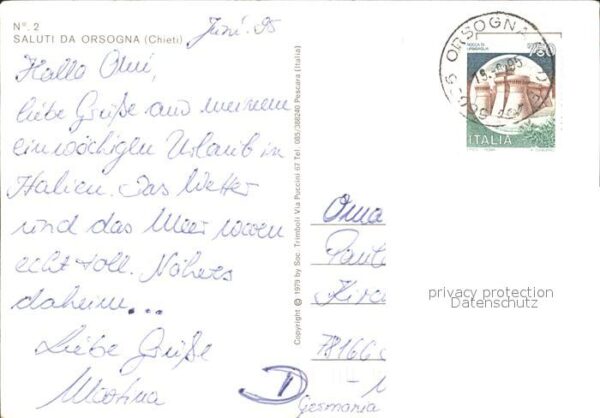 N°. 2
SALUTI DA ORSOGNA (Chieti)
Juni. 95
Hallo Omi,
liebe Grüße aus meinem
einwöchigen Urlaub in
Italien. Das Wetter
und das Meer waren
echt toll. Näheres
daheim...
Liebe Grüße
Martina
Copyright © 1979 by Soc. Trimboli Via Puccini 67 Tel. 085/388240 Pescara (Italia)
ORSOGNA
ROCCA DI URBISAGLIA
750
ITALIA
Oma
78166
D
Germania
privacy protection
Datenschutz